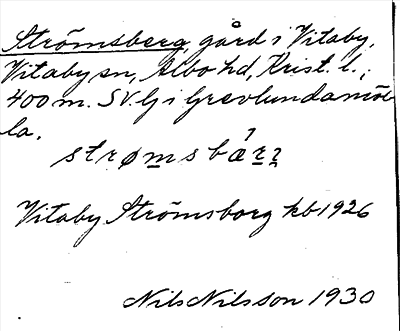 Strömsberg, gård i Vitaby,
Vitaby sn, Albo hd, Krist. l.;
400 m. SV lj i Grevlundamöl-
la.
strømsbærʒ
Vitaby Strömsborg kb 1926
Nils Nilsson 1930